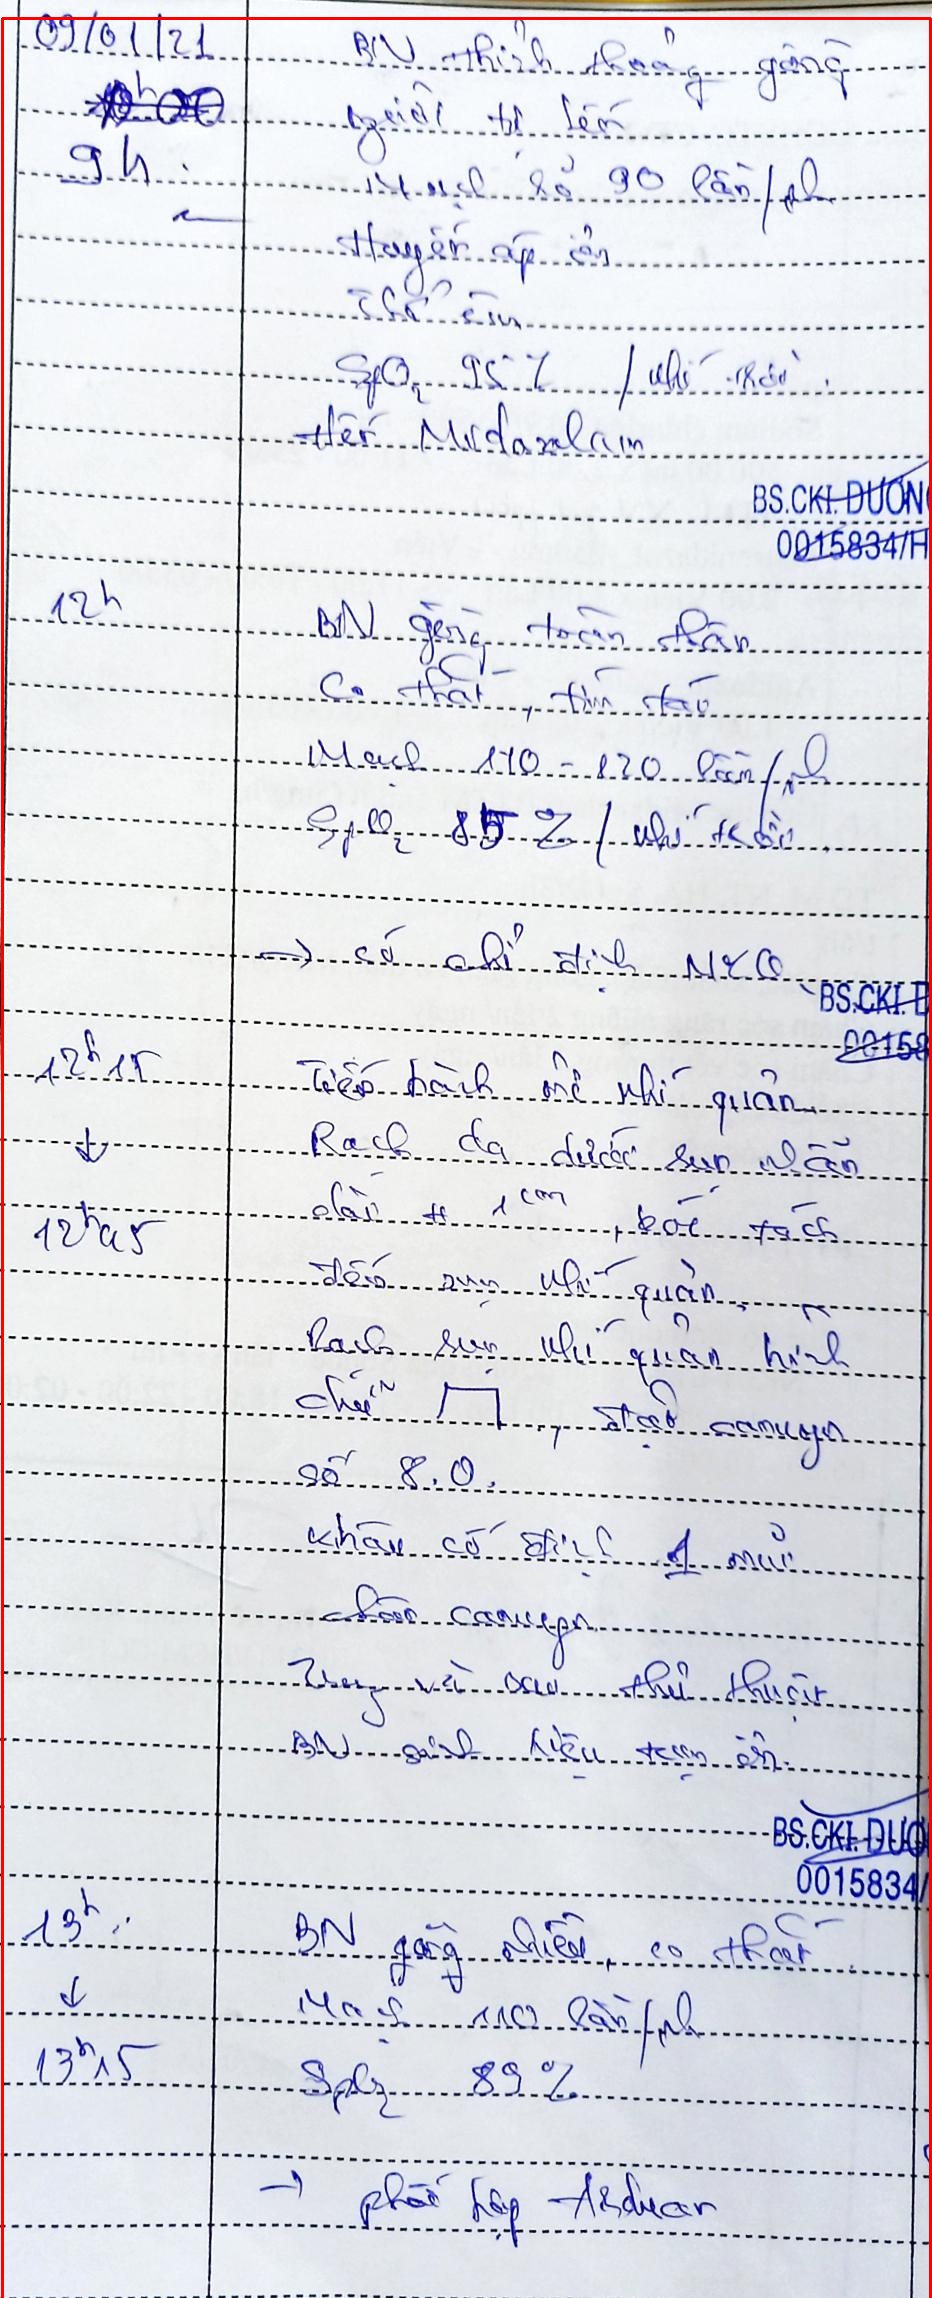 09/01/21
BN thỉnh thoảng gồng
người từ lên
9h
Mạch số 90 lần/ph
Huyết áp ổn
Thở êm
SpO2 95% / khí trời.
Hết Midazolam
BS.CKI. DƯƠN
0015834/H
12h
BN gồng toàn thân
Co thắt, tím tái
Mạch 110 - 120 lần/ph
SpO2 85% / khí trời.
→ có chỉ định MKQ
BS.CKI. D
00158
12h15
Tiến hành mở khí quản.
↓
Rạch da dưới sụn nhẫn
12h45
dài # 1cm, bóc tách
đến sụn khí quản.
Rạch sụn khí quản hình
chữ ⊓, đặt canuyn
số 8.0.
Khâu cố định 1 mũi
chân canuyn
Trong và sau thủ thuật
BN sinh hiệu tạm ổn.
BS.CKI. DƯƠ
0015834/
13h
BN gồng nhiều, co thắt.
↓
Mạch 110 lần/ph
13h15
SpO2 89%
→ phối hợp Arduan